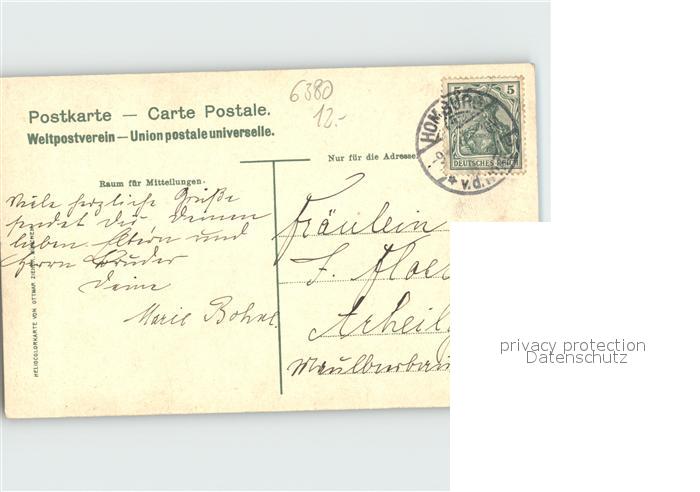 6380
12.-
Postkarte — Carte Postale.
Weltpostverein — Union postale universelle.
5 5
HOMBURG
v.d.H.
DEUTSCHES REICH
Nur für die Adresse.
Raum für Mitteilungen.
Viele herzliche Grüße
sendet Dir, Deinen
lieben Eltern und
Herrn Bruder
Deine
Marie
Fräulein
F.
Arheil
Maulbeerbau
HELIOCOLORKARTE VON OTTMAR ZIEHER, MÜNCHEN
privacy protection
Datenschutz